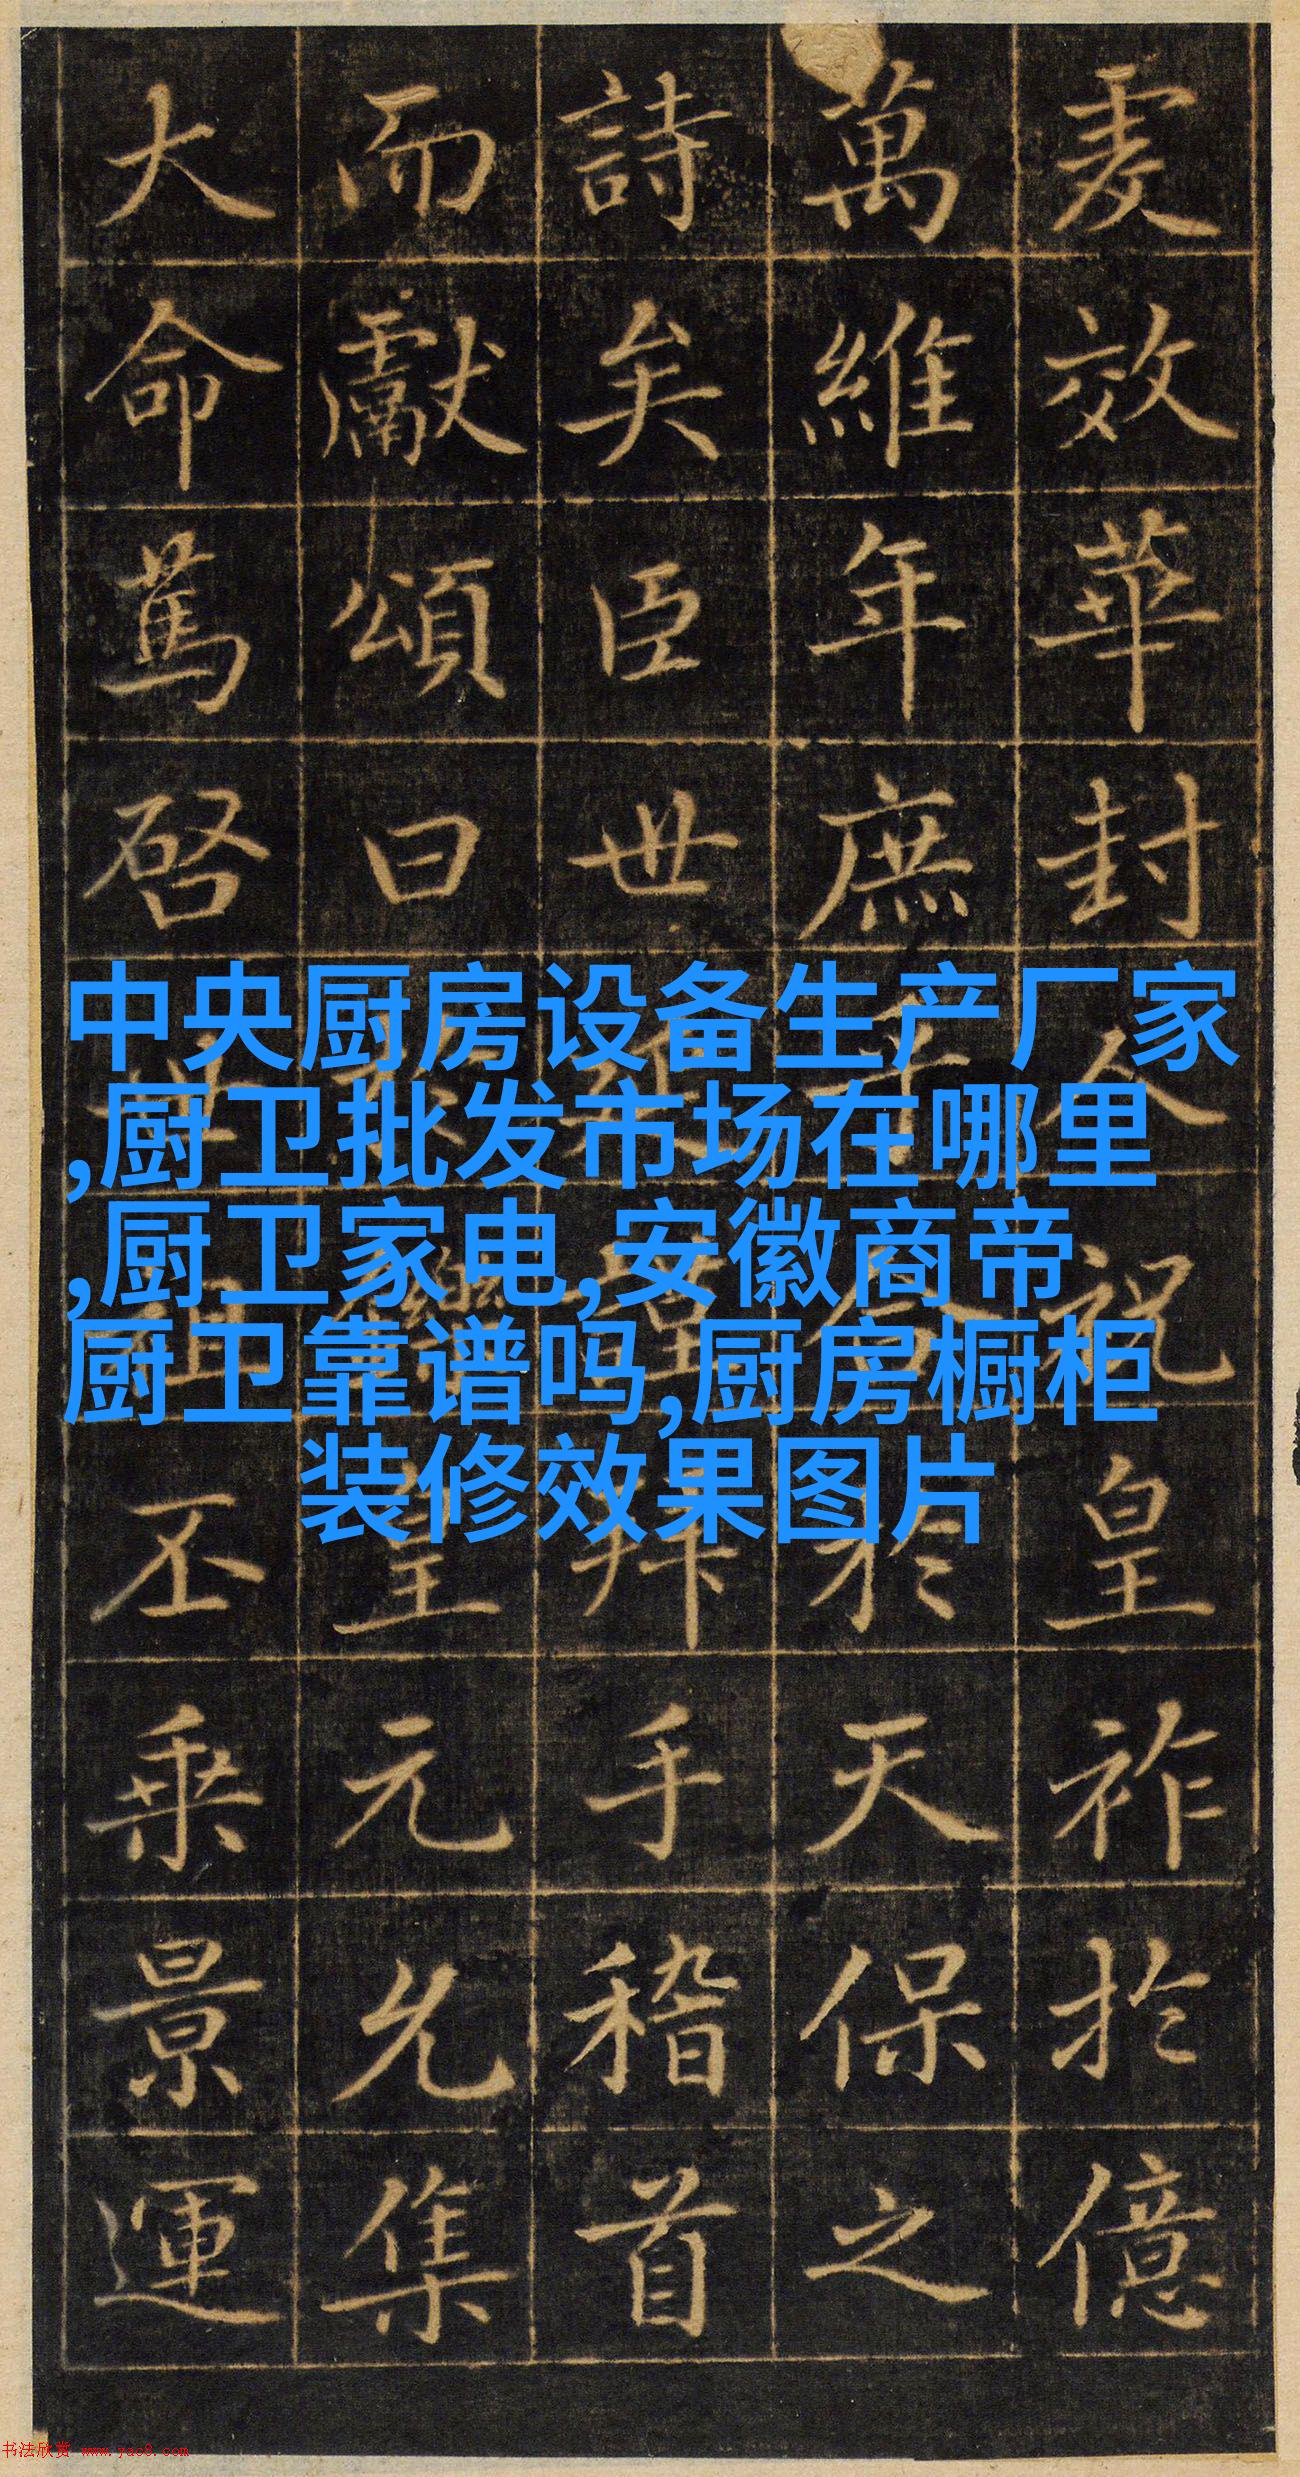 虔效華封人祝皇祚於億
萬維年庶乎合於天保之
詩矣臣世延謹拜手稽首
而獻頌曰皇元允集
大命篤啓世祖丕乘景運
中央厨房设备生产厂家
,厨卫批发市场在哪里
,厨卫家电,安徽商帝
厨卫靠谱吗,厨房橱柜
装修效果图片
书法欣赏 www.yac8.com